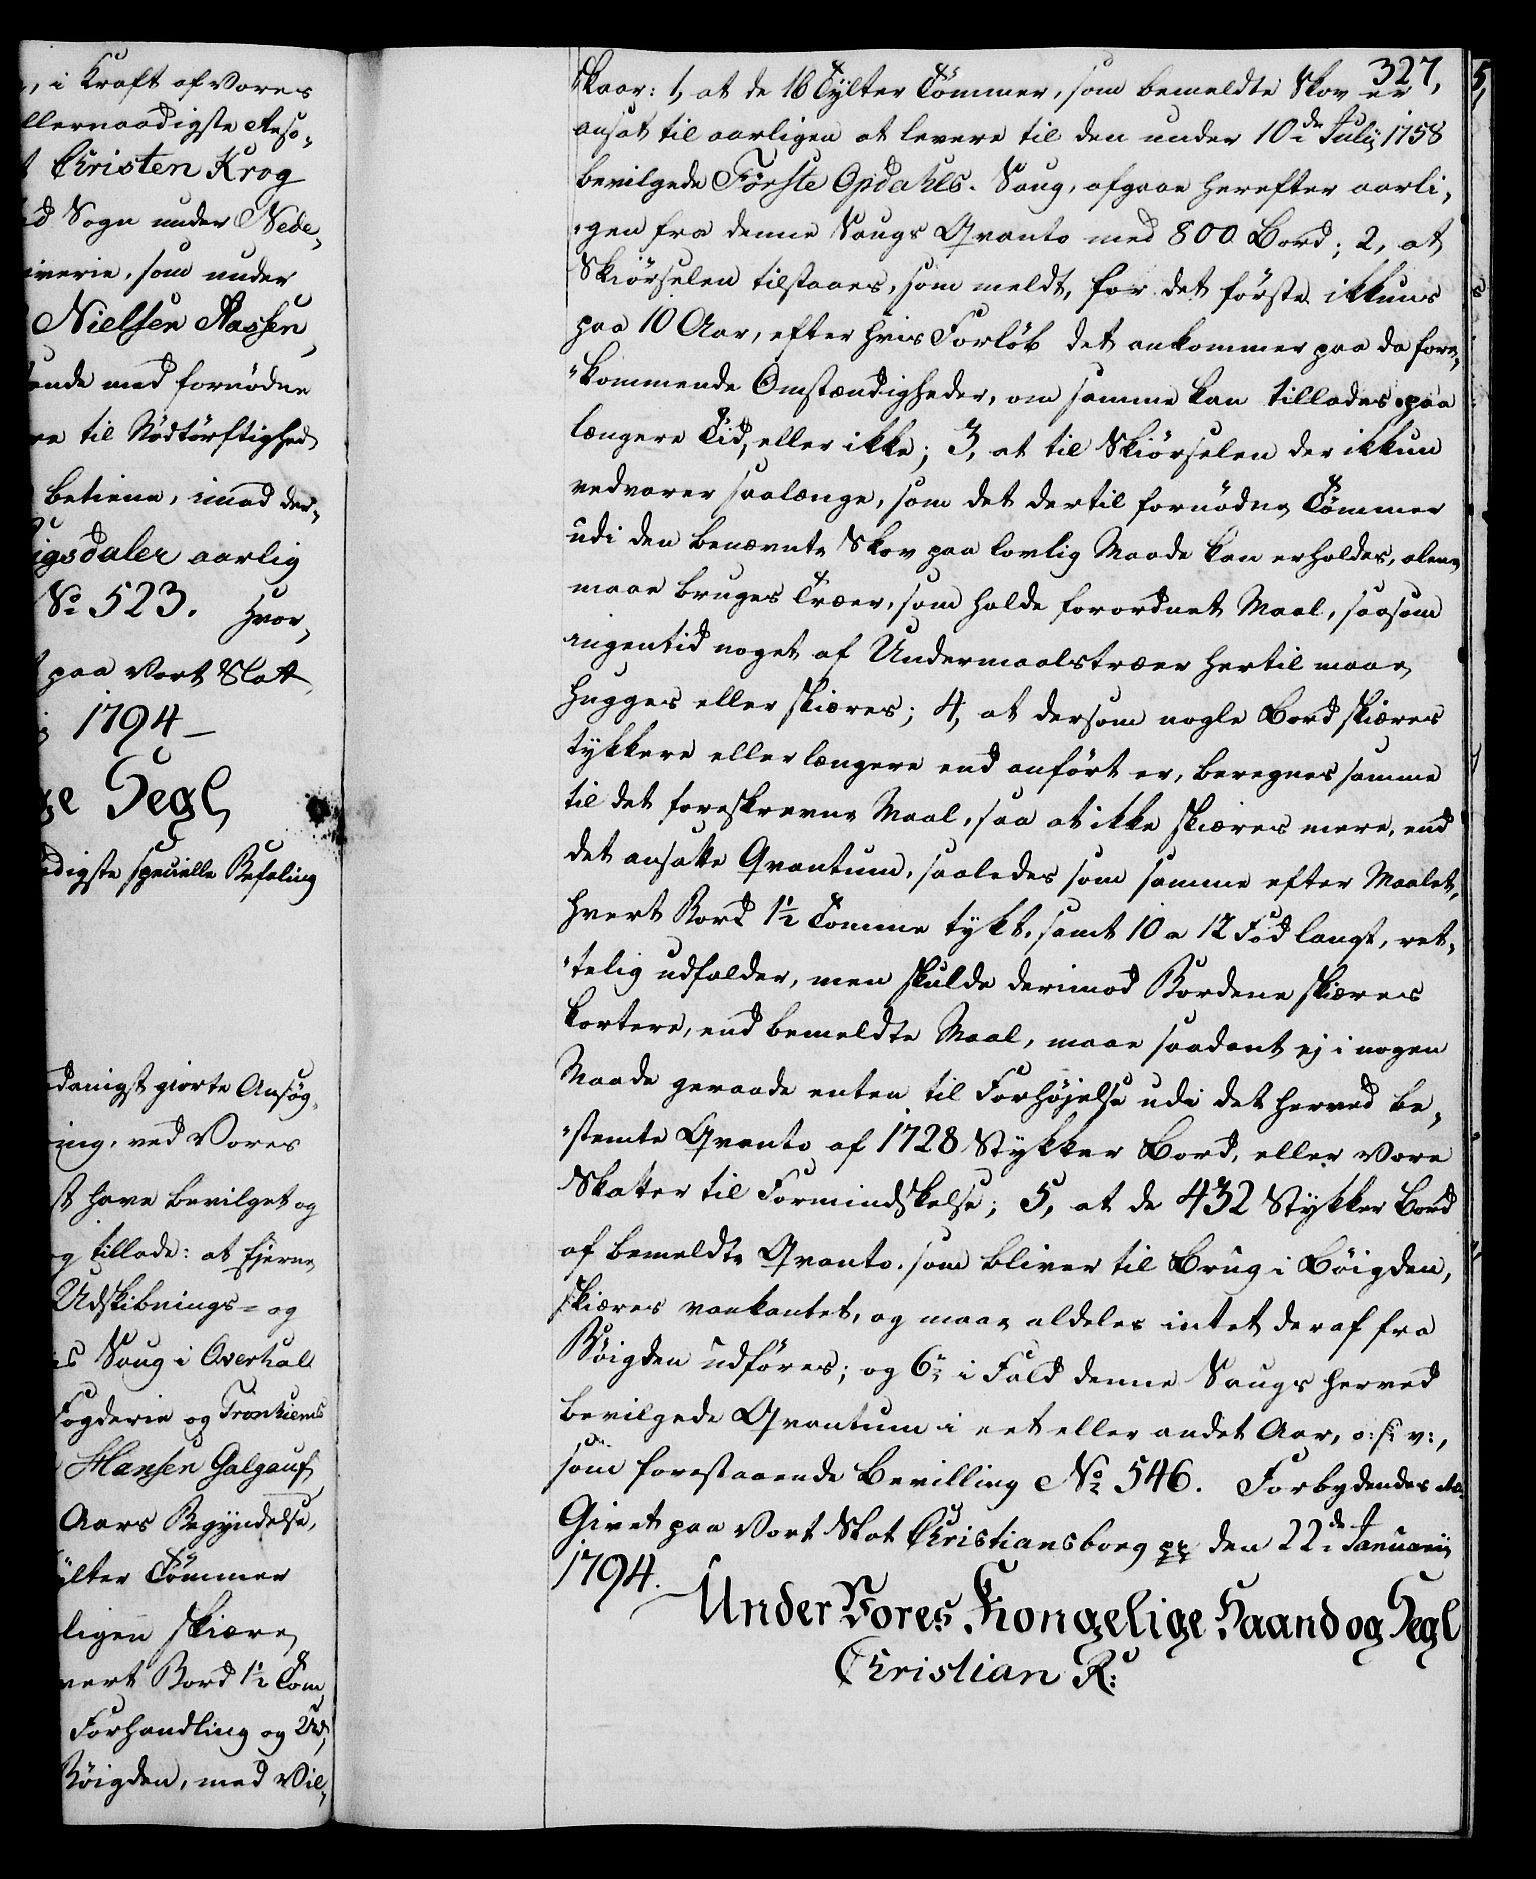 , i Kraft af Vores
llernaadigste Reso-
Christen Krog
d Sogn under Nede-
iverie, som under
Nielsen Aassen
ende med fornödne
re til Nödtörftighed
betiene, imod der-
igsdaler aarlig
No 523. Hvor-
paa Vort Slot
1794 –
ge Segl
digste specielle Befaling
danigst giorte Ansög-
ing, ved Vores
st have bevilget og
g tillade: at Eierne
Udskibnings- og
is Saug i Overhal
Fogderie og Tronhiems
Hansen Galgauf
Aars Begÿndelse,
ÿlter Tömmer
ligen skiære
vert Bord 1½ Tom
Forhandling og Ud-
Böigden, med Vil-
327,
skaar: 1, at de 16 Tÿlter Tömmer, som bemeldte Skov er
ansat til aarligen at levere til den under 10de Julÿ 1758
bevilgede Förste Opdahls Saug, afgaae herefter aarli-
-gen fra denne Saugs Qvanto med 800 Bord; 2, at
Skiörselen tilstaaes, som meldt, for det förste ikkuns
paa 10 Aar, efter hvis Forlöb det ankommer paa da fore-
-kommende Omstændigheder, om samme kan tillades paa
længere Tid, eller ikke; 3, at til Skiörselen der ikkun
vedvarer saalænge, som det dertil fornödne Tömmer
udi den benævnte Skov paa lovlig Maade kan erholdes, alene
maae bruges Træer, som holde forordnet Maal, saasom
ingentid noget af Undermaalstræer hertil maae
hugges eller skiæres; 4, at dersom nogle Bord skiæres
tÿkkere eller længere end anfört er, beregnes samme
til det foreskrevne Maal, saa at ikke skiæres mere, end
det ansatte Qvantum, saaledes som samme efter Maalet,
hvert Bord 1½ Tomme tÿkt, samt 10 a 12 Fod langt, ret-
-telig udfalder, men skulde derimod Bordene skiæres
kortere, end bemeldte Maal, maae saadant ej i nogen
Maade geraade enten til Forhöjelse udi det herved be-
-stemte Qvanto af 1728 Stÿkker Bord, eller Vore
Skatter til Formindskelse; 5, at de 432 Stÿkker Bord
af bemeldte Qvanto, som bliver til Brug i Böigden,
skiæres vankantet, og maae aldeles intet deraf fra
Böigden udföres; og 6, i Fald denne Saugs herved
bevilgede Qvantum i eet eller andet Aar, o: s: v:,
som forestaaende Bevilling No 546. Forbydendes etc.
Givet paa Vort Slot Christiansborg pp den 22de Januarii
1794.
Under Vores Kongelige Haand og Segl
Christian R: